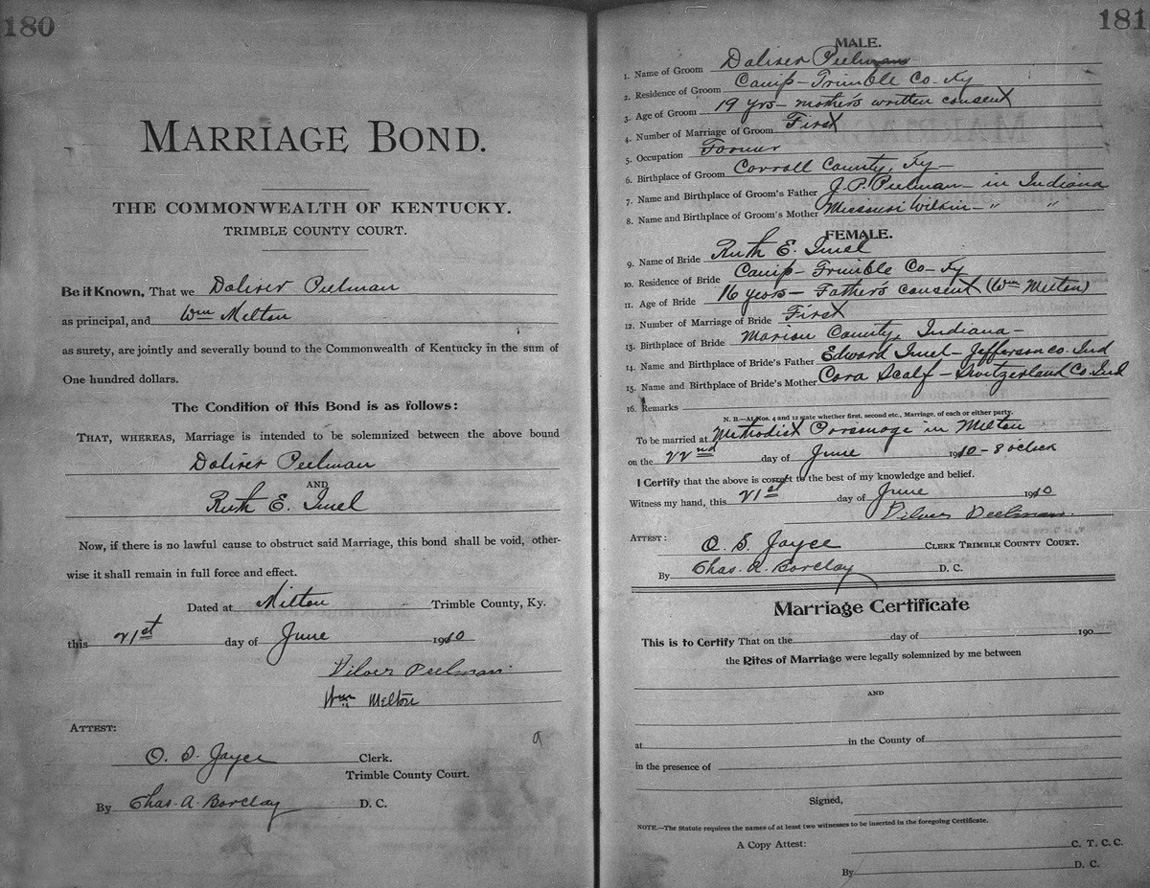 180
MARRIAGE BOND.
THE COMMONWEALTH OF KENTUCKY.
TRIMBLE COUNTY COURT.
Be it Known, That we Doliver Peelman
as principal, and Wm Melton
as surety, are jointly and severally bound to the Commonwealth of Kentucky in the sum of
One hundred dollars.
The Condition of this Bond is as follows:
THAT, WHEREAS, Marriage is intended to be solemnized between the above bound
Doliver Peelman
AND
Ruth E. Imel
Now, if there is no lawful cause to obstruct said Marriage, this bond shall be void, other-
wise it shall remain in full force and effect.
Dated at Milton Trimble County, Ky.
this 21st day of June 1910
Peelman
Wm Melton
ATTEST:
O. S. Joyce Clerk.
Trimble County Court.
By Chas. A. Barclay D. C.
181
MALE.
1. Name of Groom Doliver Peelman
2. Residence of Groom Camp - Trimble Co - Ky
3. Age of Groom 19 yrs - mother's written consent
4. Number of Marriage of Groom First
5. Occupation Farmer
6. Birthplace of Groom Carroll County, Ky -
7. Name and Birthplace of Groom's Father J. P. Peelman - in Indiana
8. Name and Birthplace of Groom's Mother Missouri Wilkin - " "
FEMALE.
9. Name of Bride Ruth E. Imel
10. Residence of Bride Camp - Trimble Co - Ky
11. Age of Bride 16 years - Father's consent (Wm Melton)
12. Number of Marriage of Bride First
13. Birthplace of Bride Marion County, Indiana -
14. Name and Birthplace of Bride's Father Edward Imel - Jefferson co. Ind
15. Name and Birthplace of Bride's Mother Cora Scalf - Switzerland Co. Ind
16. Remarks
N. B.—At Nos. 4 and 12 state whether first, second etc., Marriage, of each or either party.
To be married at Methodist Parsonage in Milton
on the 22nd day of June 1910 - 8 o'clock
I Certify that the above is correct to the best of my knowledge and belief.
Witness my hand, this 21st day of June 1910
Peelman
ATTEST: O. S. Joyce CLERK TRIMBLE COUNTY COURT.
By Chas. A. Barclay D. C.
Marriage Certificate
This is to Certify That on the day of 190
the Rites of Marriage were legally solemnized by me between
AND
at in the County of
in the presence of
Signed,
NOTE.—The Statute requires the names of at least two witnesses to be inserted in the foregoing Certificate.
A Copy Attest: C. T. C. C.
By D. C.